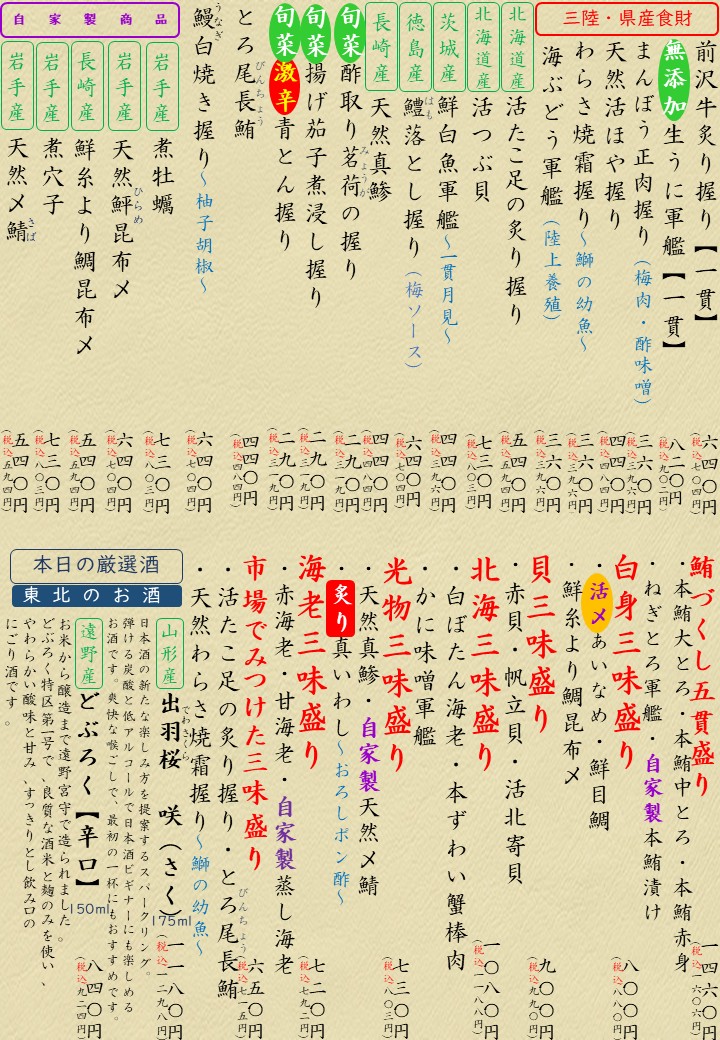 三陸・県産食財
前沢牛炙り握り【一貫】 六四〇円(税込七〇四円)
無添加 生うに軍艦【一貫】 八二〇円(税込九〇二円)
まんぼう正肉握り(梅肉・酢味噌) 三六〇円(税込三九六円)
天然活ほや握り 四四〇円(税込四八四円)
わらさ焼霜握り～鰤の幼魚～ 三六〇円(税込三九六円)
海ぶどう軍艦(陸上養殖) 三六〇円(税込三九六円)
北海道産 活たこ足の炙り握り 五四〇円(税込五九四円)
北海道産 活つぶ貝 七三〇円(税込八〇三円)
茨城産 鮮白魚軍艦～一貫月見～ 四四〇円(税込
徳島産 鱧はも落とし握り(梅ソース) 六四〇円(税込七〇四円)
長崎産 天然真鯵 四四〇円(税込四八四円)
旬菜 酢取り茗荷みょうがの握り 二九〇円(税込三一九円)
旬菜 揚げ茄子煮浸し握り 二九〇円(税込三一九円)
旬菜 激辛 青とん握り 二九〇円(税込三一九円)
とろ尾長鮪びんちょう 四四〇円(税込四八四円)
鰻うなぎ白焼き握り～柚子胡椒～ 六四〇円(税込七〇四円)
自家製商品
岩手産 煮牡蠣 七三〇円(税込八〇三円)
岩手産 天然鮃ひらめ昆布〆 六四〇円(税込七〇四円)
長崎産 鮮糸より鯛昆布〆 五四〇円(税込五九四円)
岩手産 煮穴子 七三〇円(税込八〇三円)
岩手産 天然〆鯖さば 五四〇円(税込五九四円)
鮪づくし五貫盛り
・本鮪大とろ・本鮪中とろ・本鮪赤身
・ねぎとろ軍艦・自家製本鮪漬け 一四六〇円(税込一六〇六円)
白身三味盛り
・活〆あいなめ・鮮目鯛
・鮮糸より鯛昆布〆 八〇〇円(税込八八〇円)
貝三味盛り
・赤貝・帆立貝・活北寄貝 九〇〇円(税込九九〇円)
北海三味盛り
・白ぼたん海老・本ずわい蟹棒肉
・かに味噌軍艦 一〇八〇円(税込一一八八円)
光物三味盛り
・天然真鯵・自家製天然〆鯖
・炙り真いわし～おろしポン酢～ 七三〇円(税込八〇三円)
海老三味盛り
・赤海老・甘海老・自家製蒸し海老 七二〇円(税込七九二円)
市場でみつけた三味盛り
・活たこ足の炙り握り・とろ尾長鮪びんちょう
・天然わらさ焼霜握り～鰤の幼魚～ 六五〇円(税込七一五円)
本日の厳選酒
東北のお酒
山形産 出羽桜でわざくら 咲(さく) 175ml 一一八〇円(税込一二九八円)
日本酒の新たな楽しみ方を提案するスパークリング。
弾ける炭酸と低アルコールで日本酒ビギナーにも楽しめる
お酒です。爽快な喉ごしで、最初の一杯にもおすすめです。
遠野産 どぶろく【辛口】 150ml 八四〇円(税込九二四円)
お米から醸造まで遠野宮守で造られました。
どぶろく特区第一号で、良質な酒米と麹のみを使い、
やわらかい酸味と甘み、すっきりとし飲み口の
にごり酒です。